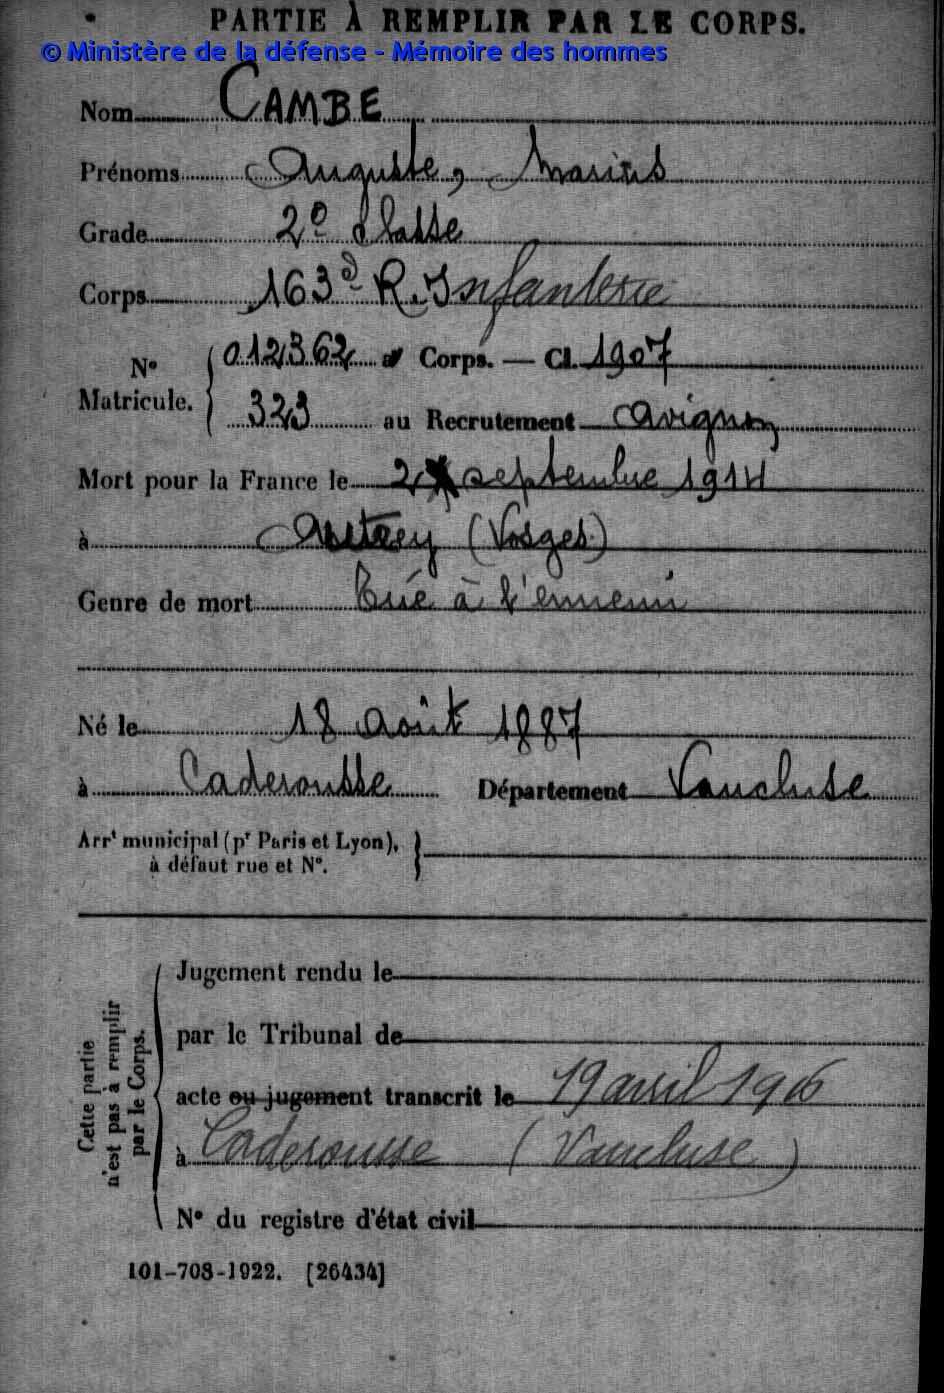 PARTIE À REMPLIR PAR LE CORPS.
© Ministère de la défense - Mémoire des hommes
Nom CAMBE
Prénoms Auguste, Marius
Grade 2e classe
Corps 163e R. Infanterie
No Matricule. { 012362 au Corps. — Cl. 1907
323 au Recrutement Avignon
Mort pour la France le 2 septembre 1914
à Autrey (Vosges)
Genre de mort Tué à l'ennemi
Né le 18 août 1887
à Caderousse Département Vaucluse
Arrt municipal (pr Paris et Lyon), }
à défaut rue et No.
Cette partie n'est pas à remplir par le Corps.
Jugement rendu le
par le Tribunal de
acte ou jugement transcrit le 19 avril 1916
à Caderousse (Vaucluse)
No du registre d'état civil
101-708-1922. [26434]